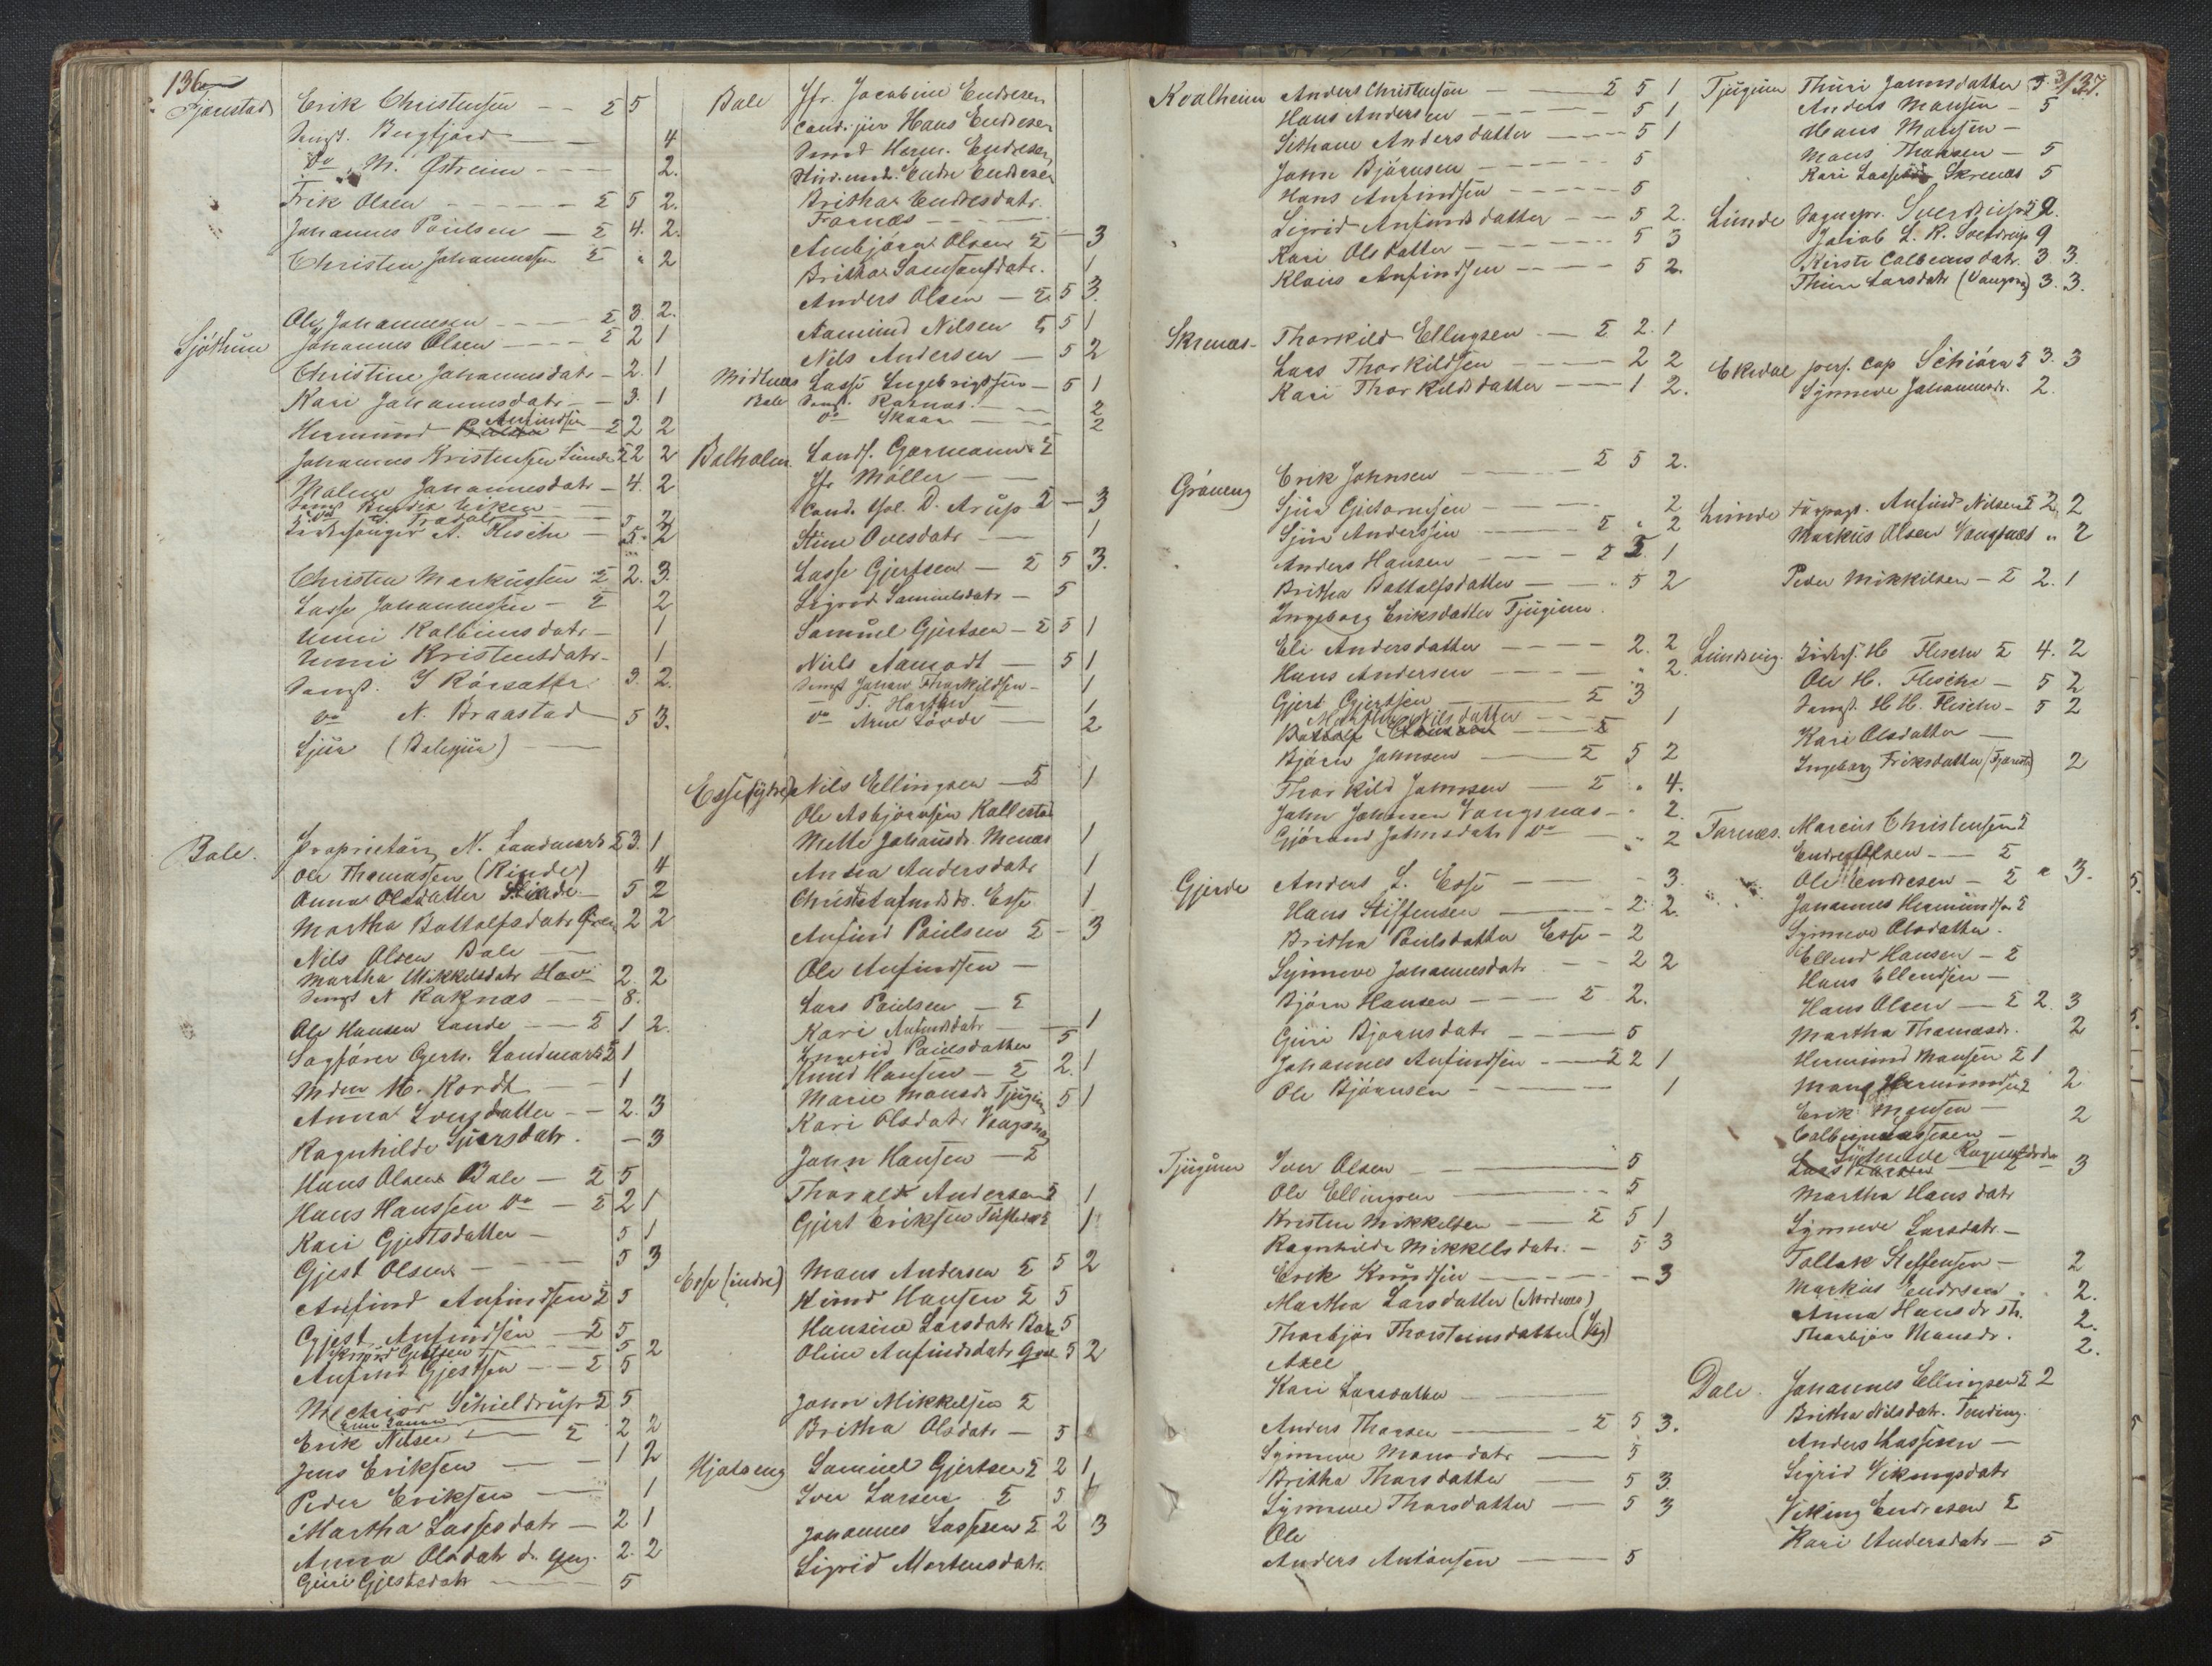 136
Tjønstad Erik Christensen — — Σ 5
Bergfjord — — 4
do M. Østreim — — 2.
Erik Olsen — — Σ 5 2.
Johannes Poulsen — Σ 4. 2.
Christen Johannessen Σ " 2
Ole Johannesen — — Σ 3 2.
Sjøthun Johannes Olsen — — Σ 2 1
Christine Johannesdatr — 2. 1
Kari Johannesdatr — — 3. 1
Hermund Anfindsen — Σ 2 2
Johannes Kristensen Linde Σ 2 2
Malene Johannesdatr — 4. 2
N. Flesche — 5. 2
Christen Markussen Σ 2. 3.
Lasse Johannessen — Σ 2
Unni Kolbeinsdatr — 1
Unni Kristensdatr — 1
3. 2.
do N. Braastad — 5 3.
Sjur (Balesjur) —
Bale. Proprietær N. Landmark Σ 3. 1
Ole Thomassen (Rinde) 4
Anna Olsdatter — 5 2
Martha Bottolfsdatr 2 2
Nils Olsen Bale —
Martha Mikkelsdatr — 2. 2
N Raknæs — — 8.
Ole Hansen Lunde — — Σ 1 2.
Sagfører Gerh. Landmark Σ 1
M. Kordt — — 1
Anna — — 2. 3
Ragnhilde Sjursdatr. — 3
Hans Olsen Bale — Σ 5
Hans Hanssen do — Σ 2 1
Kari Gjertsdatter — 5 1
Gjert Olsen — — 5 3
Anfind Anfindsen Σ 5
Gjert Anfindsen — Σ 5
Gjertsen — 5 2
Anfind Gjertsen — — Σ 5
Melchior Schieldrup Σ 5
Erik Nilsen — Σ 2 2
Jens Eriksen — — 1 2
Peder Eriksen — 1
Martha Lassesdatr — 2 1
Anna Olsdatr — 2. 2
Guri Gjertsdatr — 5
Bale Jfr. Jacobine Endresen
Cand. jur Hans Endresen
Herm. Endresen
Endre Endresen
Britha Endresdatr.
Farnæs — —
Asbjørn Olsen Σ — 3
Britha Samsonsdatr. 1
Anders Olsen — Σ. 5 3.
Aamund Nilsen Σ 5 1
Nils Andersen — 5 2
Midtnæs Lasse Ingebrigtsen — 5 1
Bale Raknæs — — 2
do Skaar — — 2
Balholm. Garmann Σ
Jfr Møller — —
Cand. D. Arup Σ — 3
Stine Ovesdatr — 1
Lasse Gjertsen — Σ 5 3.
Sigrid Samuelsdatr — 5
Samuel Gjertsen — Σ 5 1
Niels Aamodt — 5 1
Thorkildsen — 1
1
do Arne — 2
Esse (ydre) Nils Ellingsen — Σ 1
Ole Asbjørnsen Kallestad
Mette Johansdr. Menæs 1
Ansea Andersdatr 1
Esse 1
Anfind Poulsen Σ — 3
Ole Anfindsen —
Lars Poulsen — Σ
Kari Anfindsdatr — 1
Ingerid Poulsdatter 5
Knud Hansen — Σ 2. 1
Marie Monsdr Tjugum 5 1
Kari Olsdatr Vangsnæs
John Hansen — Σ
Thorald Andersen Σ 1
Gjert Eriksen Σ 1
Esse (indre) Mons Andersen Σ 5 2
Knud Hansen Σ 5
Hansine Larsdatr 5
Oline Anfindsdatr 5 2
John Mikkelsen Σ
Britha Olsdatr — 5
Samuel Gjertsen Σ 2 1
Iver Larsen Σ 5 1
Johannes Lassesen Σ 2 3
Sigrid Mortensdatr.
Kvalheim Anders Christensen — — Σ 5 1
Hans Andersen — — 5 1
Andersdatter — — 5 1
John Bjørnsen — — 5
Hans Anfindsen — — 5
Sigrid Anfindsdatter — — 5 2.
Kari Olsdatter — — 5 3
Klaus Anfindsen — — 5 2.
Skrenæs — Thorkild Ellingsen — Σ 2. 1
Lars Thorkildsen — — 2 2
Kari Thorkildsdatter — 1 2.
Grøneng Erik Johnsen — Σ 5 2.
Sjur — — 2
Sjur Anderssen — Σ " 2
Anders Hansen — — Σ 5 1
Britha Bottolfsdatter — " 5 2
Ingeborg Eriksdatter Tjugum.
Eli Andersdatter — — 2. 2
Hans Andersen — " 2.
Gjert Gjertsen — Σ 3
Nilsdatter — 1
— Σ
Bjørn Johnsen — Σ 5 2
Thorkild Johnsen — Σ " 4.
John Johnsen Vangsnæs — " 2.
Gjørond Johnsdatr do — " 2
Gjerde Anders L. Esse — — 3.
Hans Stiffensen — — 2. 2.
Britha Poulsdatter Esse — 2
Synneve Johannesdatr — — 2 2
Bjørn Hansen — — Σ 2.
Guri Bjørnsdatr — — 5
Johannes Anfindsen — Σ 2 1
Ole Bjørnsen — — 1
Tjugum Iver Olsen — — 5
Ole Ellingsen — — 5
Kristen Mikkelsen — Σ 5 1
Ragnhilde Mikkelsdatr. — 5 3
Erik Knudsen — — 3
Martha Larsdatter (Nordnæs)
Thorbjør Thorsteinsdatter
Axel
Kari Larsdatter —
Anders Thorsen — Σ 5 3.
Synneve Monsdatr — 5
Britha Thorsdatter — 5 3.
Synneve Thorsdatter — 5 3
Ole
Anders Antonsen — 5
137.
Tjugum Thuri Johnsdatter 5. 3
Anders Monsen — 5
Hans Monsen —
Mons Thorsen — 5
Kari Skrenæs 5
Lunde Sverdrup Σ 9.
Jacob L. R. Sverdrup 9
Kirsti Colbensdatr. 3 3.
Thuri Larsdatr (Vangsn) 3. 3.
Ekedal Cap Schiørn Σ 3. 3
Synneve Johannesdr. 2.
Linde Anfind Nilsen Σ 2. 2
Markus Olsen Vangsnæs " 2
Peder Mikkelsen — Σ 2. 1
H Flesche Σ 4. 2
Ole H. Flesche — 5 2
H H. Flesche — 5 2
Kari Olsdatter —
Ingeborg Eriksdatter 2
Farnæs. Marcus Christensen Σ
Endre Olsen — Σ
Ole Endresen — Σ " 3.
Johannes Hermundsen Σ
Synneve Olsdatter.
Ellend Hansen — Σ
Hans Ellendsen —
Hans Olsen — Σ 2. 3
Martha Thomasdr. 2
Hermund Monsen Σ 1
Mons Hermundsen Σ 2
Erik Monsen — 2
Colbein Lassesen —
Synneve 3
Martha Hansdatr
Synneve Larsdatr —
Tollak Steffensen — 2
Markus Endresen 2.
Anna Hansdr. 2.
Thorbjør Monsdr. 2.
Dale. Johannes Ellingsen Σ 2
Britha Nilsdatr.
Anders Lassesen —
Sigrid Vikingsdatr
Viking Endresen Σ
Kari Andersdatr — 5